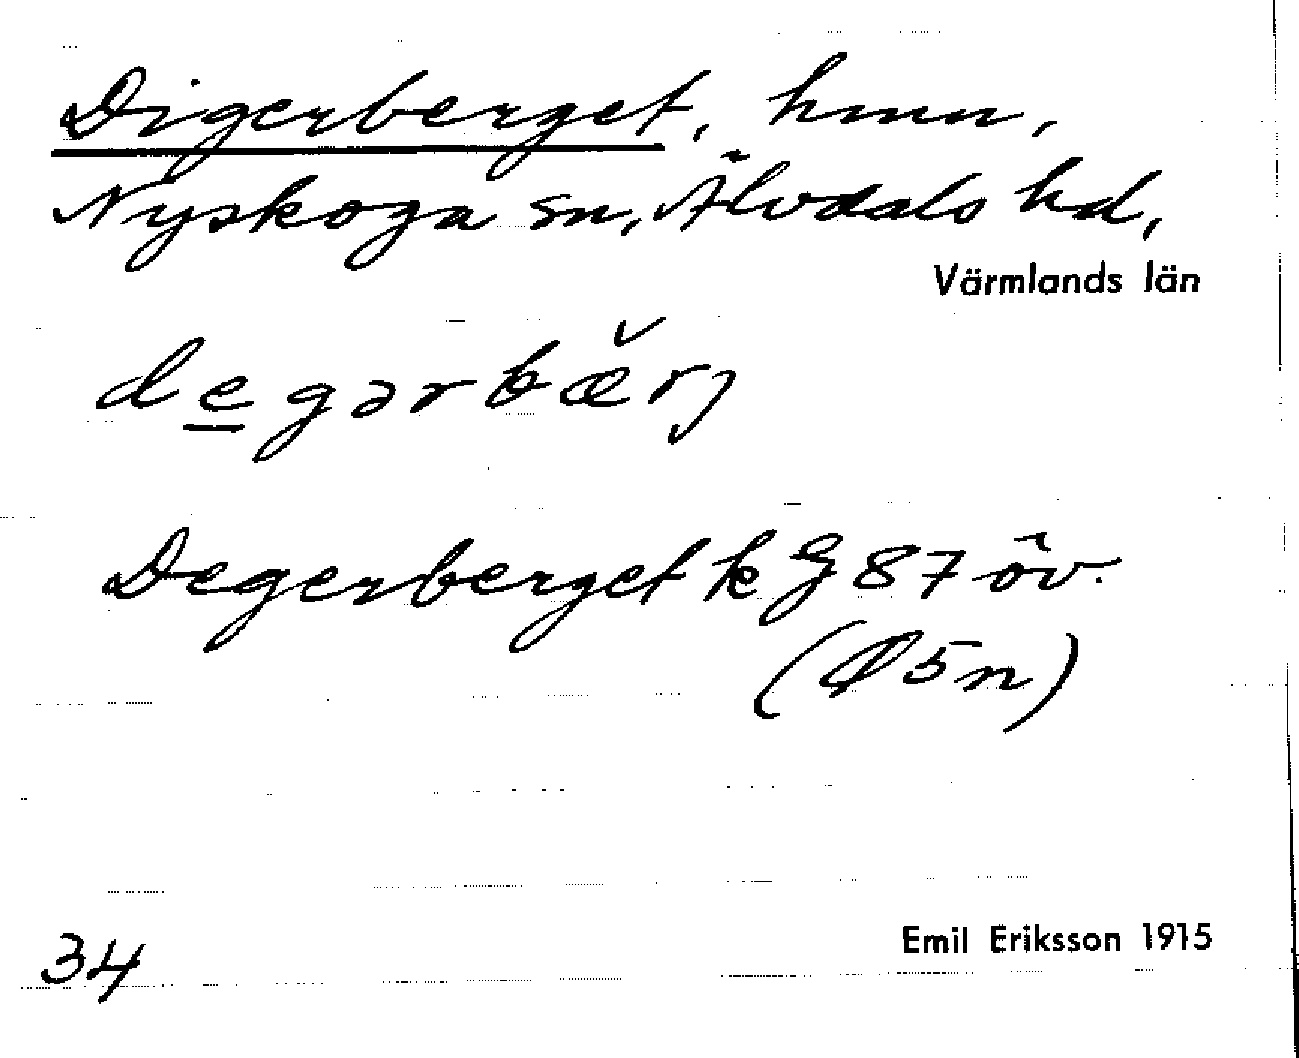 Digerberget, hmn,
Nyskoga sn, Älvdals hd,
Värmlands län
degərbæ̌rj
Degerberget k G 87 öv.
(Ø5n)
34
Emil Eriksson 1915